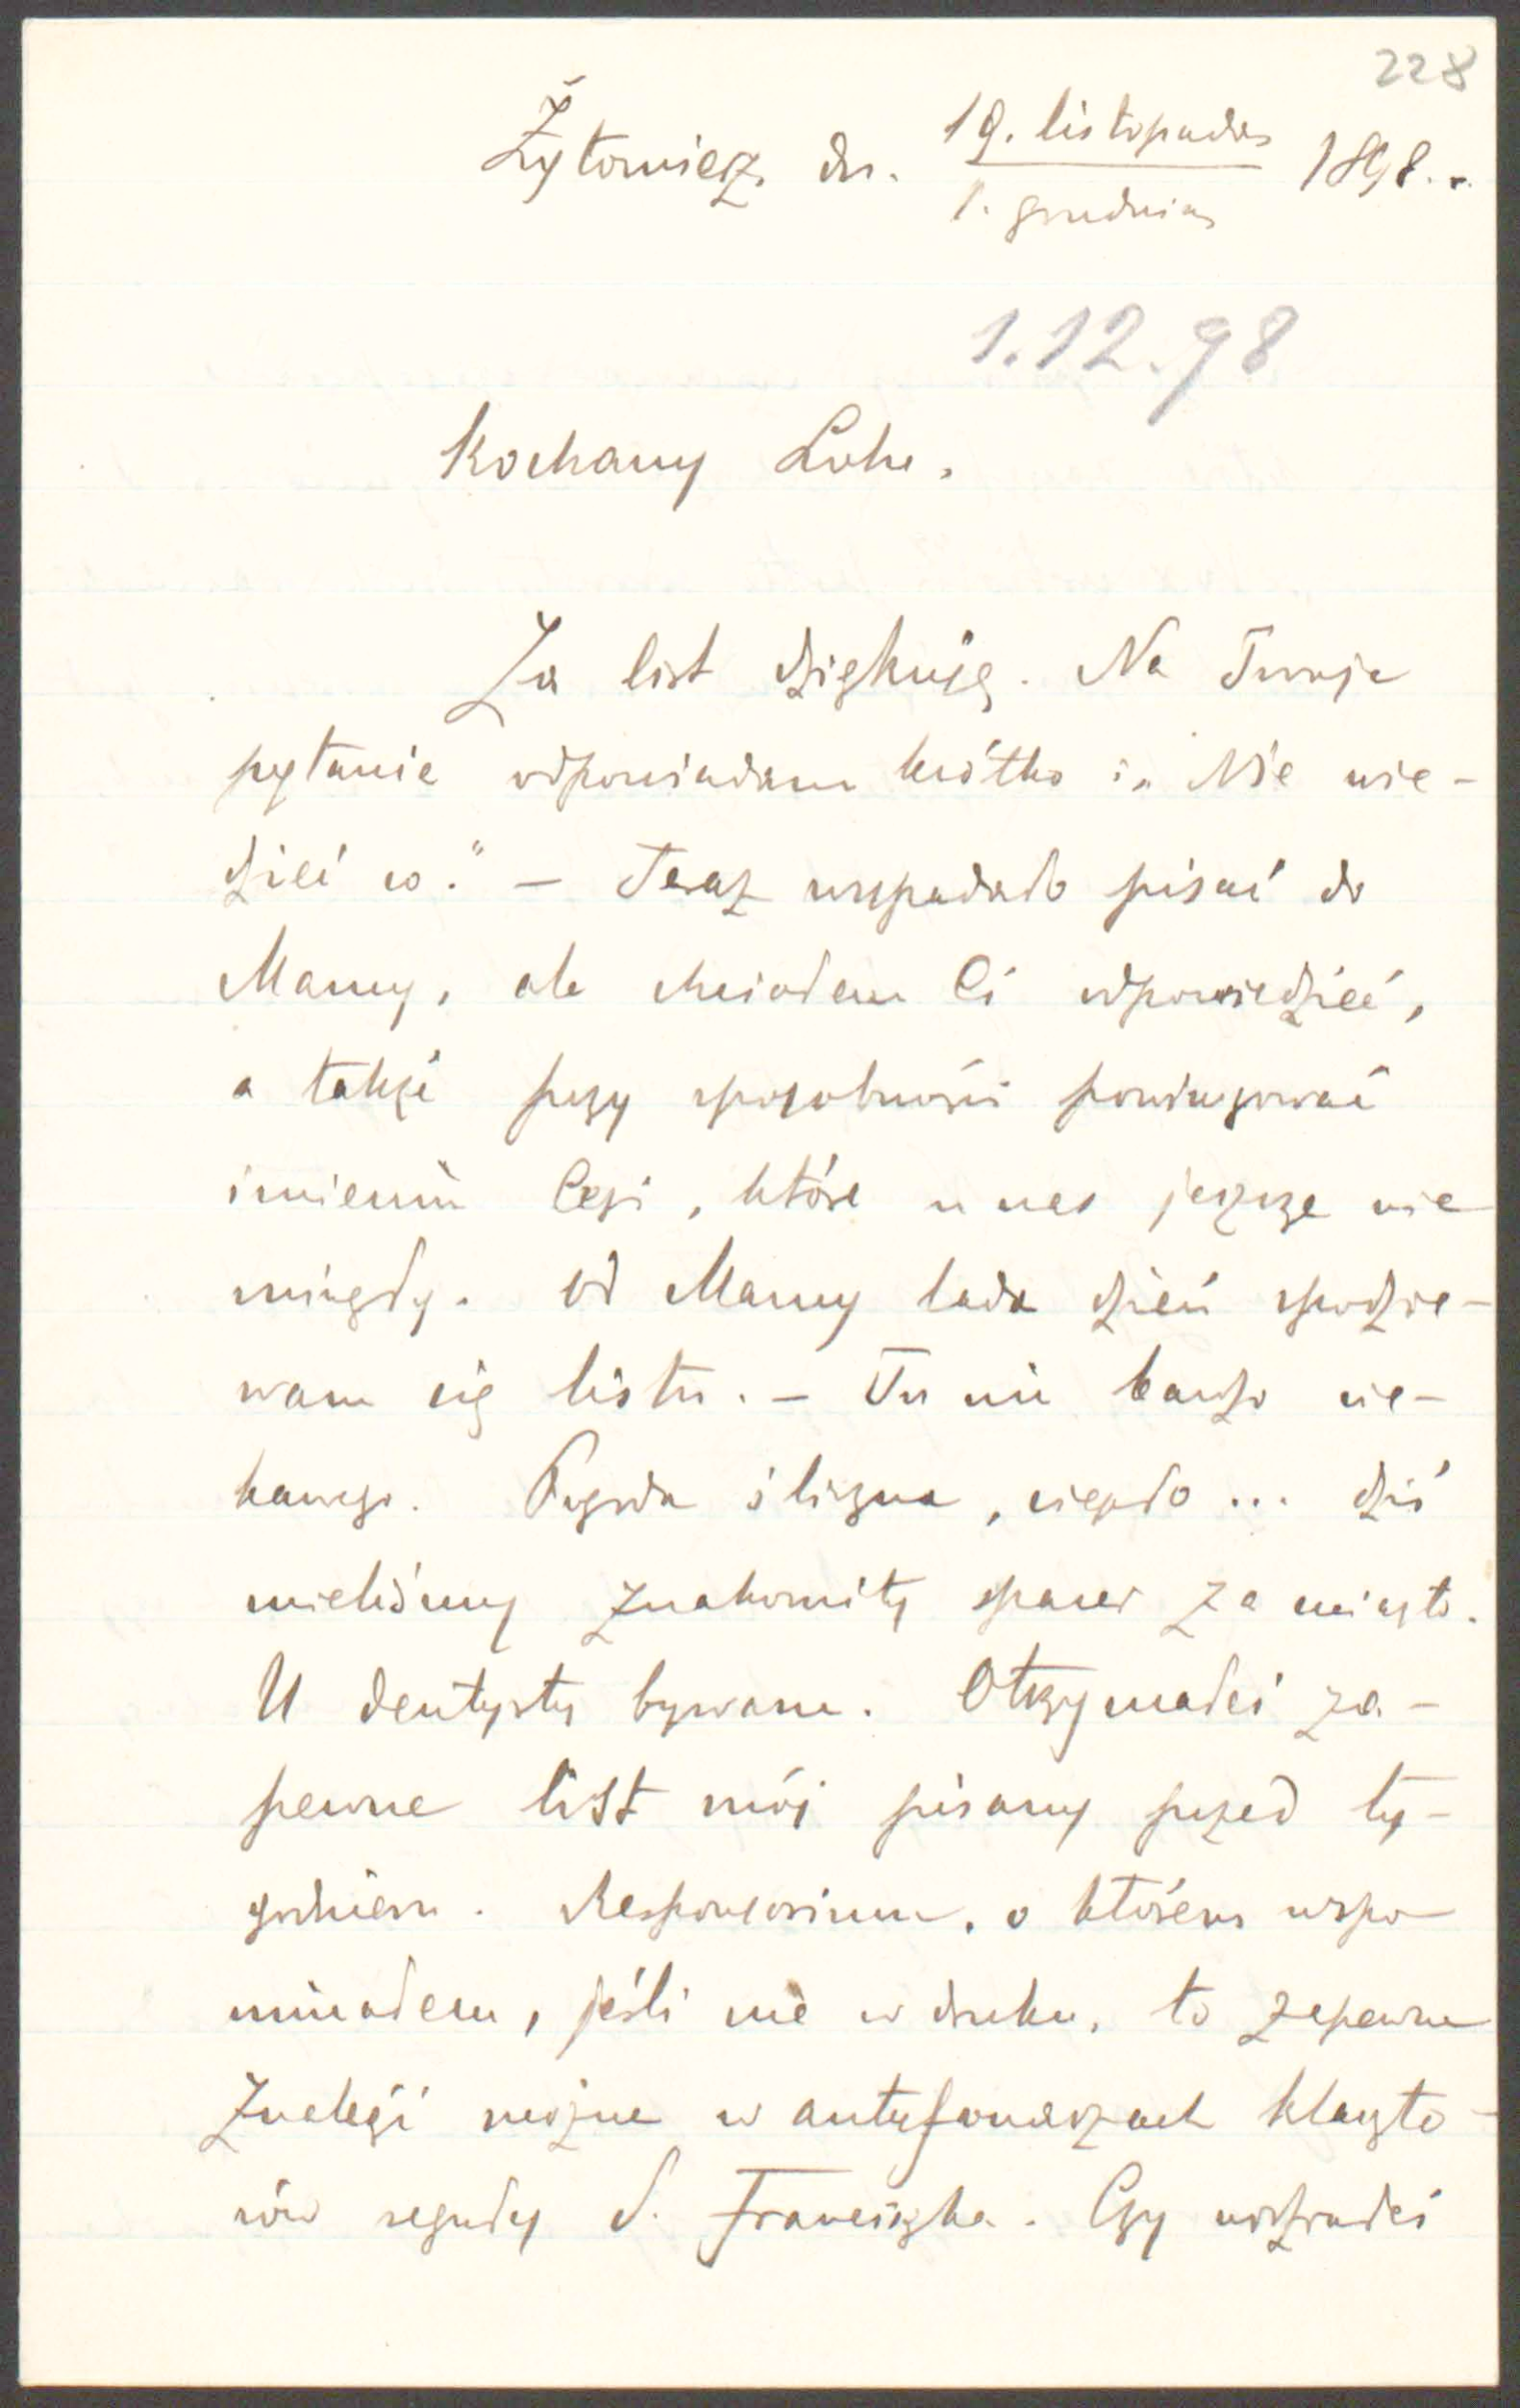 228
Żytomierz dn. 19. listopada 1898. r.
1. grudnia
1.12.98
Kochany Lolu,
Za list dziękuję. Na Twoje
pytanie odpowiadam krótko: „Nie wie-
dzieć co." – Teraz wypadało pisać do
Mamy, ale chciałem Ci odpowiedzieć,
a także przy sposobności powinszować
imienin Cezi, które u nas jeszcze nie
minęły. Od Mamy lada dzień spodzie-
wam się listu. – Tu nic bardzo cie-
kawego. Pogoda śliczna, ciepło ... dziś
mieliśmy znakomity spacer za miasto.
U dentysty bywam. Otrzymałeś za-
pewne list mój pisany przed ty-
godniem. Responsorium, o którem wspo
minałem, jeśli nie w druku, to zapewne
znaleźć można w antyfonarzach klaszto-
rów reguły S. Franciszka. Czy widziałeś